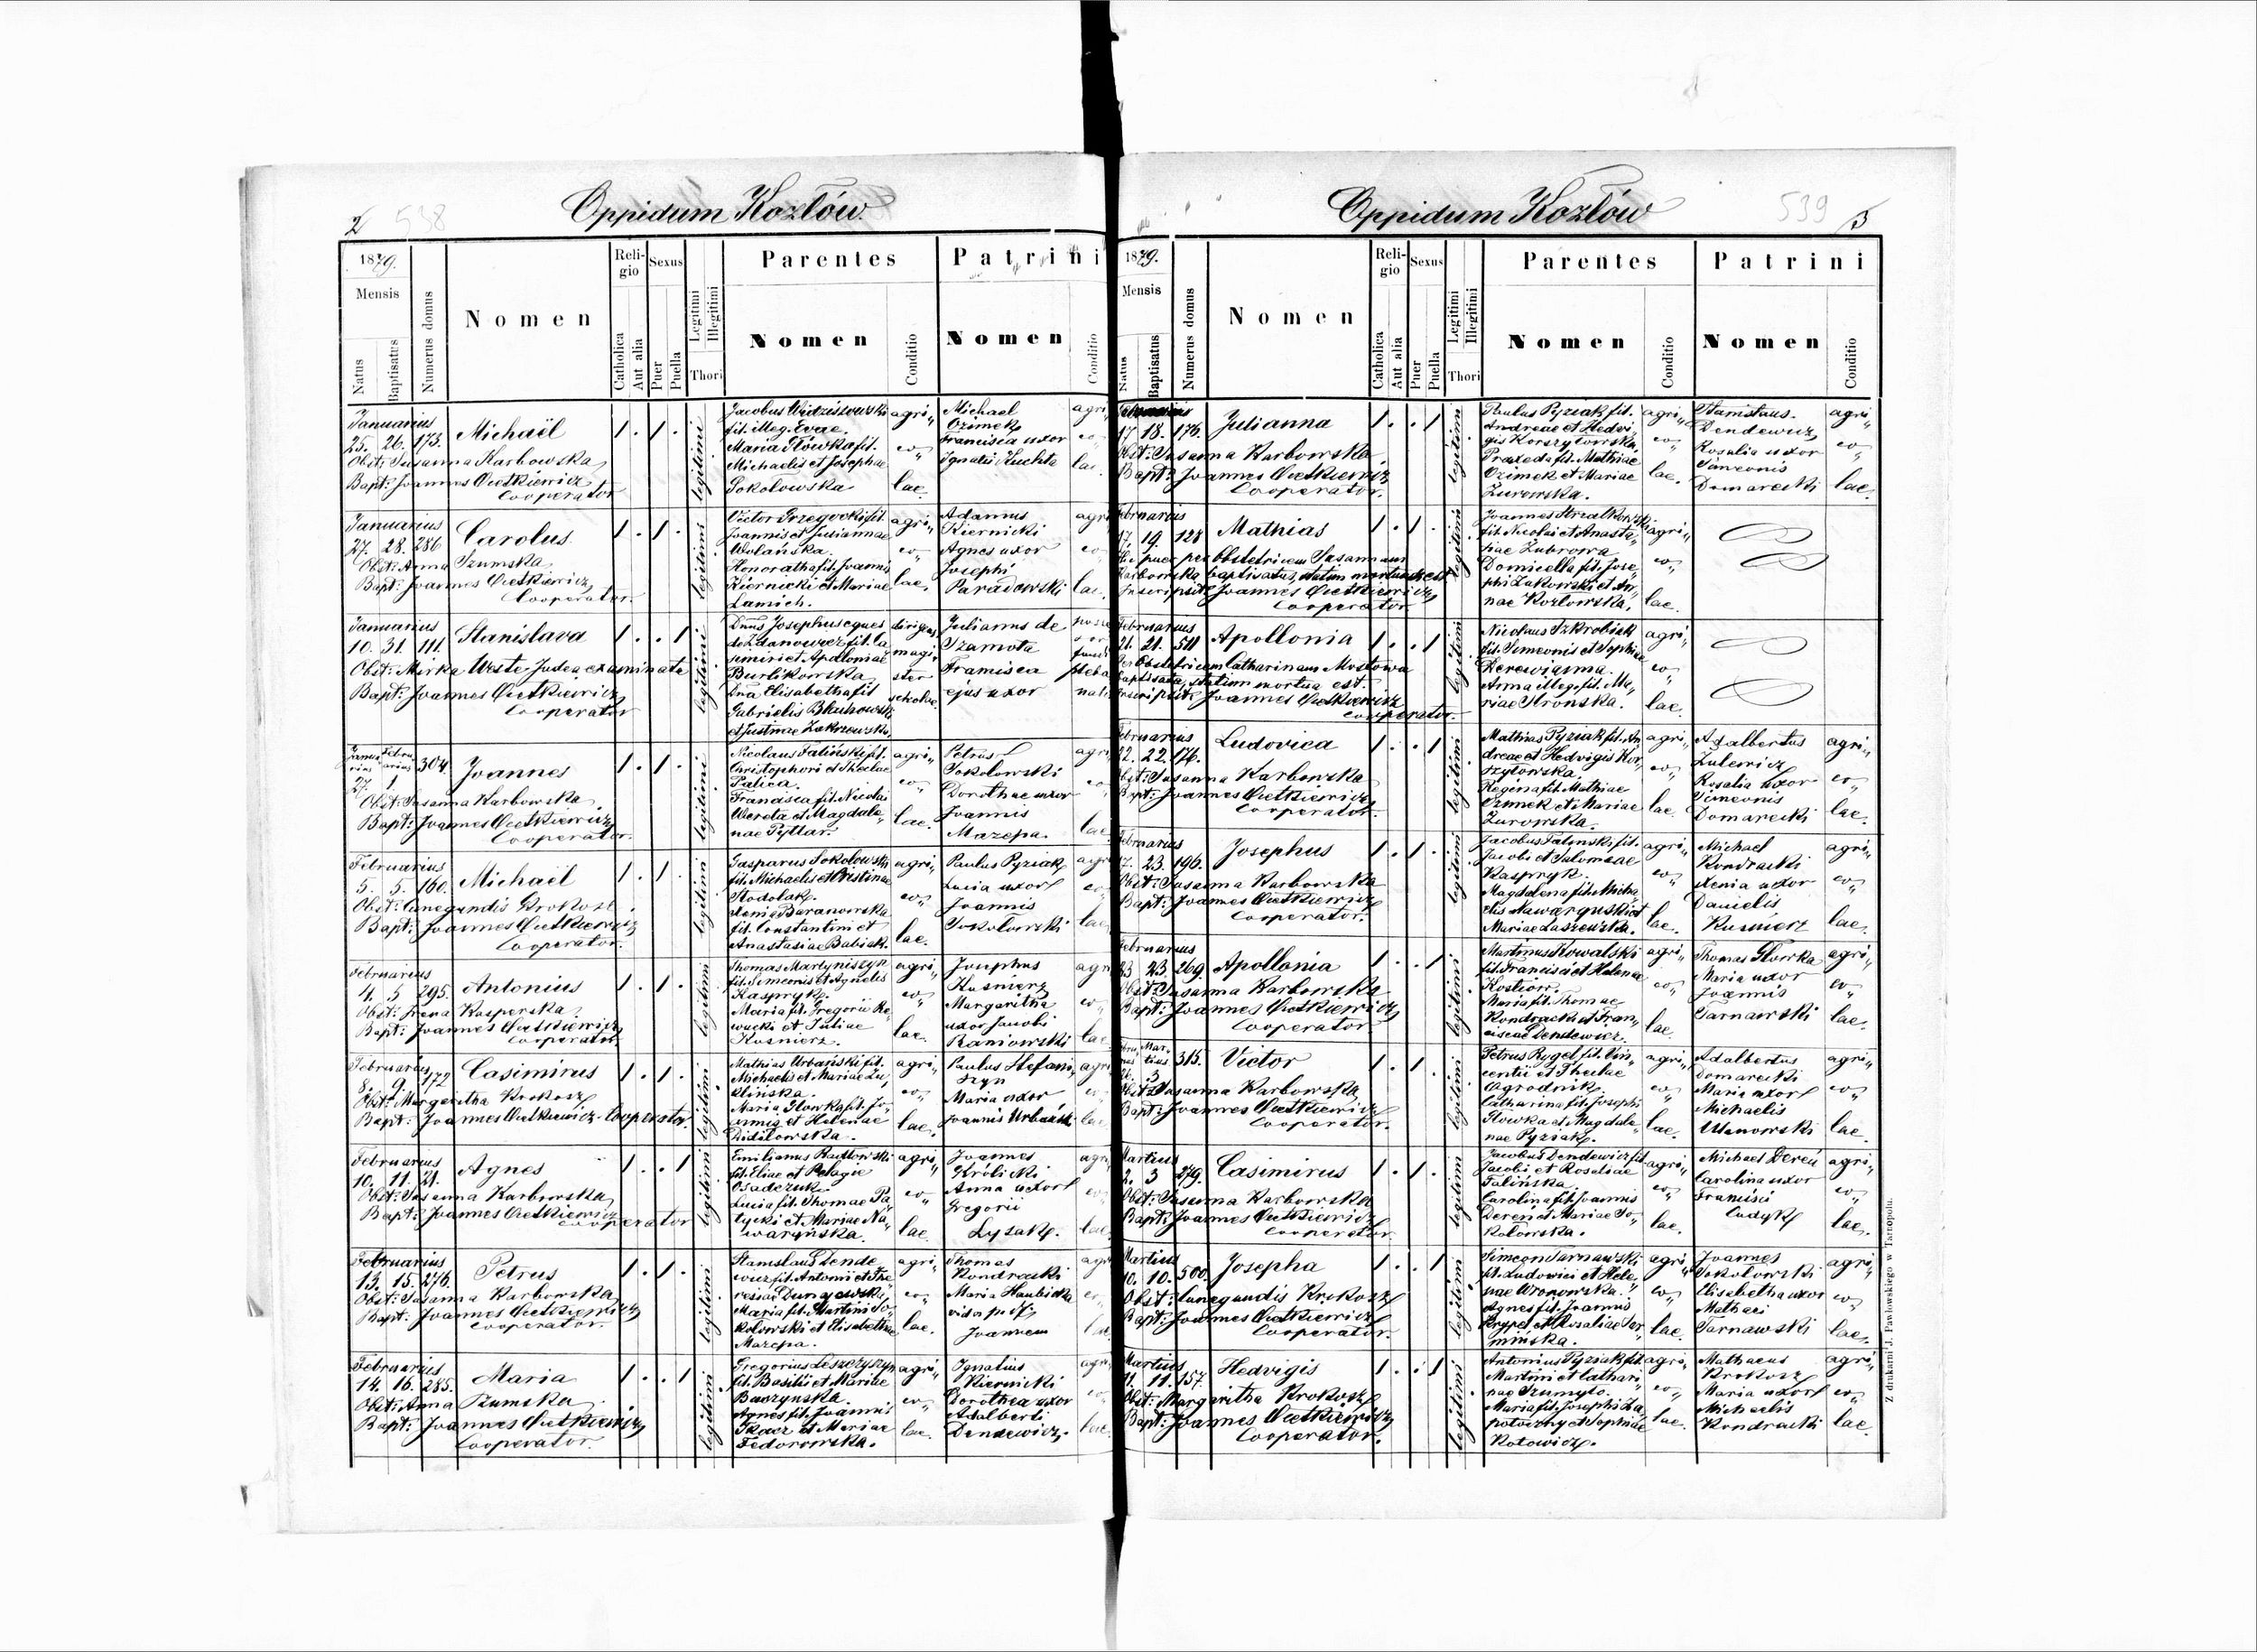 2 538
Oppidum Kozłów
1879.
Mensis
Natus
Baptisatus
Numerus domus
Nomen
Religio
Catholica
Aut alia
Sexus
Puer
Puella
Legitimi
Illegitimi
Thori
Parentes
Nomen
Conditio
Patrini
Nomen
Conditio
Januarius
25. 26. 173. Michaël 1. 1. legitimi
Obst: Susanna Karbowska
Bapt: Joannes Cietkiewicz
Cooperator
fil. illeg. Evae.
Maria Główka fil.
Michaelis et Josephae
Sokolowska
agri„
co„
lae.
Michael
Ozimek
Francisca uxor
Ignatii Kuchta
Januarius
27. 28. 286 Carolus 1. 1. legitimi
Obst: Anna Szumska
Bapt: Joannes Cietkiewicz
Cooperator.
Joannis et Julianna
Wolańska.
Honoratha fil. Joannis
Kiernicki et Mariae
Lamich.
agri„
co„
lae.
Adamus
Kiernicki
Agnes uxor
Josephi
Paradowski
Januarius
10. 31. 111. Stanislava 1. . 1 legitimi
Obst: Mirka Weste Judea examinata
Bapt: Joannes Cietkiewicz
Cooperator
Dnus Josephus eques
de Zdanowicz fil. Ca
simiri et Apoloniae
Burlikowska
Dna Elisabetha fil
et Justinae Zakrzewska
dirigens
magi
ster
scholae.
Julianus de
Szamota
Francisca
ejus uxor
Januarius Februarius
27. 1 304. Joannes 1. 1. legitimi
Obst: Susanna Karbowska
Bapt: Joannes Cietkiewicz
Cooperator.
Nicolaus Faliński fil.
Christophori et Theclae
Palica.
Francisca fil. Nicolai
Wereta et Magdale„
nae Pyttar.
agri„
co„
lae.
Petrus
Sokolowski
Dorothea uxor
Joannis
Mazepa.
Februarius
5. 5. 160. Michaël 1. 1. legitimi
Obst: Cunegundis Krokosz.
Bapt: Joannes Cietkiewicz
Cooperator.
Gasparus Sokolowski
fil. Michaelis et Christinae
Stodolak.
Xenia Baranowska
fil. Constantini et
Anastasiae Babiak.
agri„
co„
lae.
Paulus Pyziak
Lucia uxor
Joannis
Sokolowski
Februarius
4. 5 295. Antonius 1. 1. legitimi
Obst: Irena Kasperska.
Bapt: Joannes Cietkiewicz
Cooperator.
Thomas Martyniszyn
fil. Simeonis et Agnetis
Kaspryk.
Maria fil. Gregorii Re„
wucki et Juliae
Kusnierz.
agri„
co„
lae.
Josephus
Kusnierz
Margaritha
uxor Jacobi
Baniowski
Februarius
8. 9. 172 Casimirus 1. 1. legitimi
Obst: Margaritha Krokosz
Bapt: Joannes Cietkiewicz Cooperator.
Mathias Urbański fil.
Michaelis et Mariae Zu„
klińska.
Maria Głowka fil. Jo„
annis et Helenae
Didiłowska.
agri„
co„
lae.
Paulus Stefani„
szyn
Maria uxor
Joannis Urbański
Februarius
10. 11. 21. Agnes 1. . 1 legitimi
Obst: Susanna Karbowska
Bapt: Joannes Cietkiewicz
Cooperator
fil. Eliae et Pelagie
Osadczuk.
Lucia fil. Thomae Pa„
tycki et Mariae Na„
waryńska.
agri„
co„
lae.
Joannes
Królicki
Anna uxor
Gregorii
Lysak.
Februarius
13. 15. 276. Petrus 1. 1. legitimi
Obst: Susanna Karbowska
Bapt: Joannes Cietkiewicz
Cooperator.
Stanislaus Dende
wicz fil. Antonii et The
resiae Dunajewska,
Maria fil. Martini So„
kolowski et Elisabethae
Mazepa.
agri„
co„
lae.
Thomas
Kondracki
Maria Haubicka
vidua post
Joannem
Februarius
14. 16. 285. Maria 1. . 1 legitimi
Obst: Anna Szumska
Bapt: Joannes Cietkiewicz
Cooperator.
Gregorius Leszczyszyn
fil. Basilii et Mariae
Baczynska.
Agnes fil. Joannis
Tkacz et Mariae
Fedorowska.
agri„
co„
lae.
Ignatius
Kiernicki
Dorothea uxor
Adalberti
Dendewicz.
539 3
Oppidum Kozłów
1879.
Mensis
Natus
Baptisatus
Numerus domus
Nomen
Religio
Catholica
Aut alia
Sexus
Puer
Puella
Legitimi
Illegitimi
Thori
Parentes
Nomen
Conditio
Patrini
Nomen
Conditio
Februarius
17 18. 176. Julianna 1. . 1 legitimi
Obst: Susanna Karbowska
Bapt: Joannes Cietkiewicz
Cooperator.
Paulus Pyziak fil.
Andreae et Hedvi„
gis Korszytowska,
Praxeda fil. Mathiae
Ozimek et Mariae
Zurowska.
agri„
co„
lae.
Stanislaus
Dendewicz
Rosalia uxor
Simeonis
Domarecki
agri„
co„
lae.
Februarius
17. 19. 128 Mathias 1. 1. legitimi
Hic puer per Obstetricem Susannam
Karbowska baptisatus, statim mortuus est
Inscripsit Joannes Cietkiewicz
Cooperator.
Joannes Strzalkowski
fil. Nicolai et Anasta„
siae Zubrowa
Domicella fil. Jose„
phi Zukowski et An„
nae Kozłowska.
agri„
co„
lae.
Februarius
21. 21. 511 Apollonia 1. . 1 legitimi
Per Obstetricem Catharinam Mostowa
baptisata, statim mortua est.
Inscripsit Joannes Cietkiewicz
Cooperator.
Nicolaus Szkrobiak
fil. Simeonis et Sophiae
Derewianna.
Anna illeg. fil. Ma„
riae Stronska.
agri„
co„
lae.
Februarius
22. 22. 174. Ludovica 1. . 1 legitimi
Obst: Susanna Karbowska
Bapt: Joannes Cietkiewicz
Cooperator.
Mathias Pyziak fil. An
dreae et Hedvigis Kor„
szytowska.
Regina fil. Mathiae
Ozimek et Mariae
Zurowska.
agri„
co„
lae.
Adalbertus
Zulewicz
Rosalia uxor
Simeonis
Domarecki
agri„
co„
lae.
Februarius
17. 23. 196. Josephus 1. 1. legitimi
Obst: Susanna Karbowska
Bapt: Joannes Cietkiewicz
Cooperator.
Jacobus Falinski fil.
Jacobi et Salomeae
Kaspryk.
Magdalena fil. Micha„
elis Nawarynski et
Mariae Laszewska.
agri„
co„
lae.
Michael
Kondracki
Xenia uxor
Danielis
Kusnierz
agri„
co„
lae.
Februarius
23 23. 269. Apollonia 1. . 1 legitimi
Obst: Susanna Karbowska
Bapt: Joannes Cietkiewicz
Cooperator
Martinus Kowalski
fil. Francisci et Helenae
Kostiów.
Maria fil. Thomae
Kondracki et Fran„
ciscae Dendewicz.
agri„
co„
lae.
Thomas Główka
Maria uxor
Joannis
Tarnawski
agri„
co„
lae.
Februarius Martius
26. 3 315. Victor 1. 1. legitimi
Obst: Susanna Karbowska
Bapt: Joannes Cietkiewicz
Cooperator.
Petrus Rygel fil. Vin„
centii et Theclae
Ogrodnik.
Catharina fil. Josephi
Główka et Magdale„
nae Pyziak.
agri„
co„
lae.
Adalbertus
Domarecki
Maria uxor
Michaelis
Ulanowski
agri„
co„
lae.
Martius
2. 3 279. Casimirus 1. 1. legitimi
Obst: Susanna Karbowska
Bapt: Joannes Cietkiewicz
Cooperator.
Jacobus Dendewicz fil.
Jacobi et Rosaliae
Falińska.
Carolina fil. Joannis
Dereń et Mariae So„
kolowska.
agri„
co„
lae.
Michael Dereń
Carolina uxor
Francisci
Cudyk
agri„
co„
lae.
Martius
10. 10. 500. Josepha 1. . 1 legitimi
Obst: Cunegundis Krokosz
Bapt: Joannes Cietkiewicz
Cooperator.
Simeon Tarnawski
fil. Ludovici et Hele„
nae Wronowska.
Agnes fil. Joannis
Krypel et Rosaliae Ser
mińska.
agri„
co„
lae.
Joannes
Sokolowski
Elisabetha uxor
Mathaei
Tarnawski
agri„
co„
lae.
Martius
11. 11. 157. Hedvigis 1. . 1 legitimi
Obst: Margaritha Krokosz
Bapt: Joannes Cietkiewicz
Cooperator.
Antonius Pyziak fil.
Martini et Cathari„
nae Szumylo.
Maria fil. Josephi Za„
potoczny et Sophiae
Kotowicz.
agri„
co„
lae.
Mathaeus
Krokosz
Maria uxor
Michaelis
Kondracki
agri„
co„
lae.
Z drukarni J. Pawłowskiego w Tarnopolu.